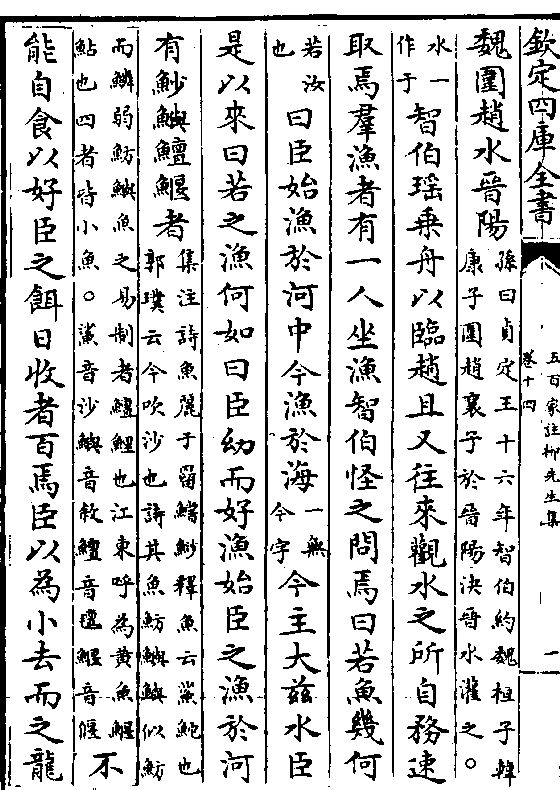 欽定四庫全書
五百家註柳先生集
卷十四
一
魏圍趙水晉陽
孫曰貞定王十六年智伯約魏桓子韓
康子圍趙襄子於晉陽決晉水灌之○
水一
作于
智伯瑶乗舟以臨趙且又往來觀水之所自務速
取焉羣漁者有一人坐漁智伯怪之問焉曰若魚幾何
若汝
也
曰臣始漁於河中今漁於海
一無
今字
今主大茲水臣
是以來曰若之漁何如曰臣幼而好漁始臣之漁於河
有魦鱮鱣鰋者
集注詩魚麗于罶鱨魦釋魚云鯊鮀也
郭璞云今吹沙也詩其魚魴鱮鱮似魴
而鱗弱魴鱮魚之易制者鱣鯉也江東呼為黄魚鰋
鮎也四者皆小魚○鯊音沙鱮音敘鱣音邅鰋音偃
不
能自食以好臣之餌日收者百焉臣以為小去而之龍